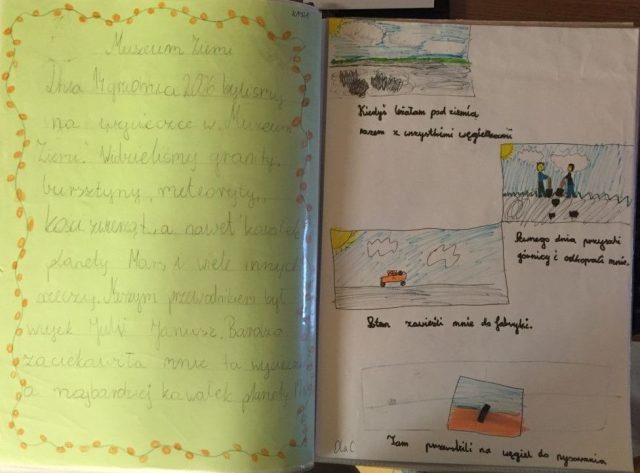 KASIA
Muzeum Ziemi
Dnia 14 grudnia 2006 byliśmy
na wycieczce w Muzeum
Ziemi. Widzieliśmy granity,
bursztyny, meteoryty,
kości zwierząt, a nawet kawałek
planety Mars, i wiele innych
rzeczy. Naszym przewodnikiem był
wujek Julii Janusz. Bardzo
zaciekawiła mnie ta wycieczka
a najbardziej kawałek planety
Kiedyś leżałam pod ziemią
razem z wszystkimi węgielkami
Pewnego dnia przyszli
górnicy i odkopali mnie.
Potem zawieźli mnie do fabryki.
Ola C
Tam przerobili na węgiel do rysowania